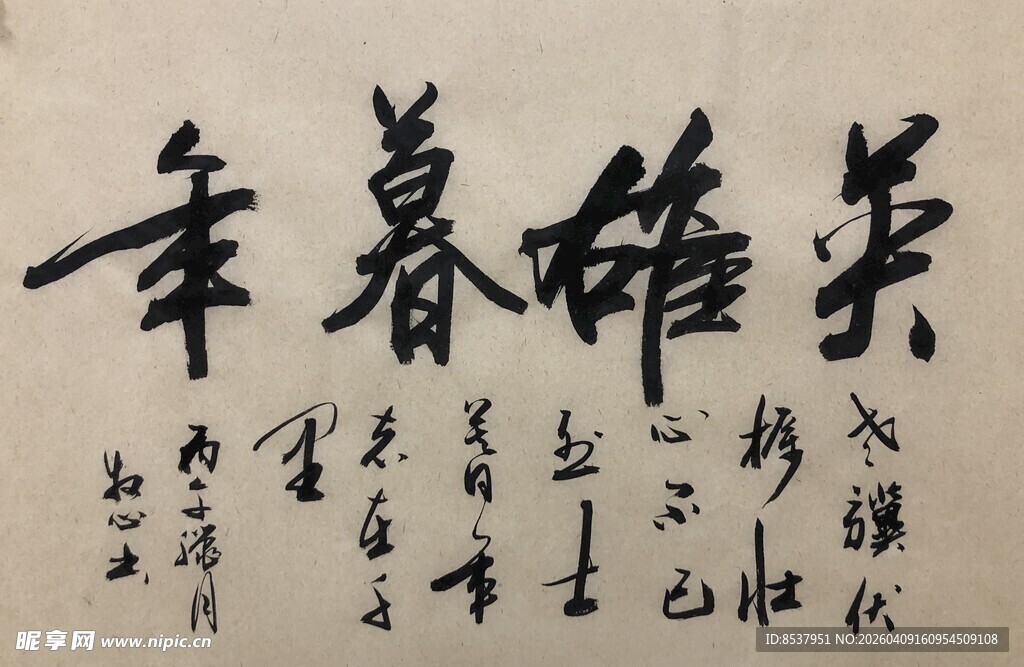 英雄暮年
老驥伏
枥壮
心不已
烈士
暮年
志在千
里
丙午臘月
牧心书
昵享网 www.nipic.cn
ID:8537951 NO:20260409160954509108